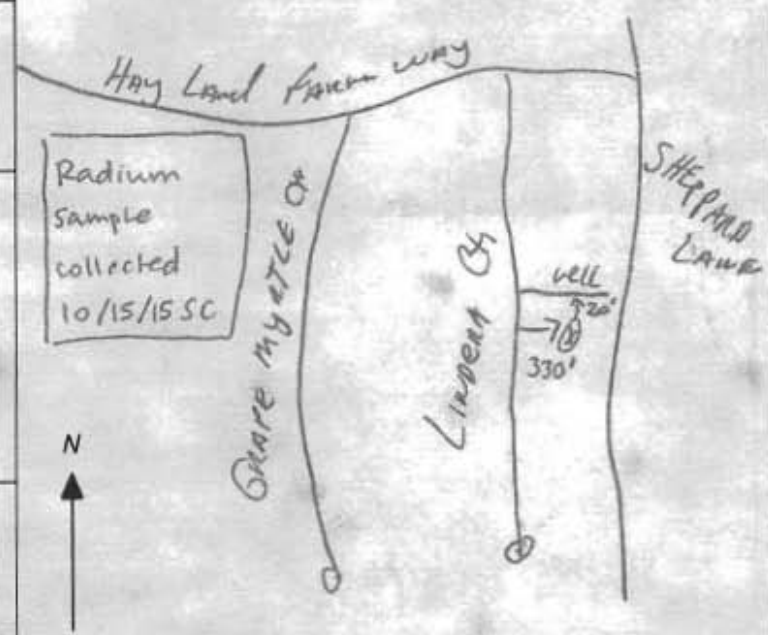 HAY LAND FARM WAY
Radium
sample
collected
10/15/15 SC
GRAPE MYRTLE Ct
LINDERA Ct
SHEPPARD
LANE
well
20'
330'
N